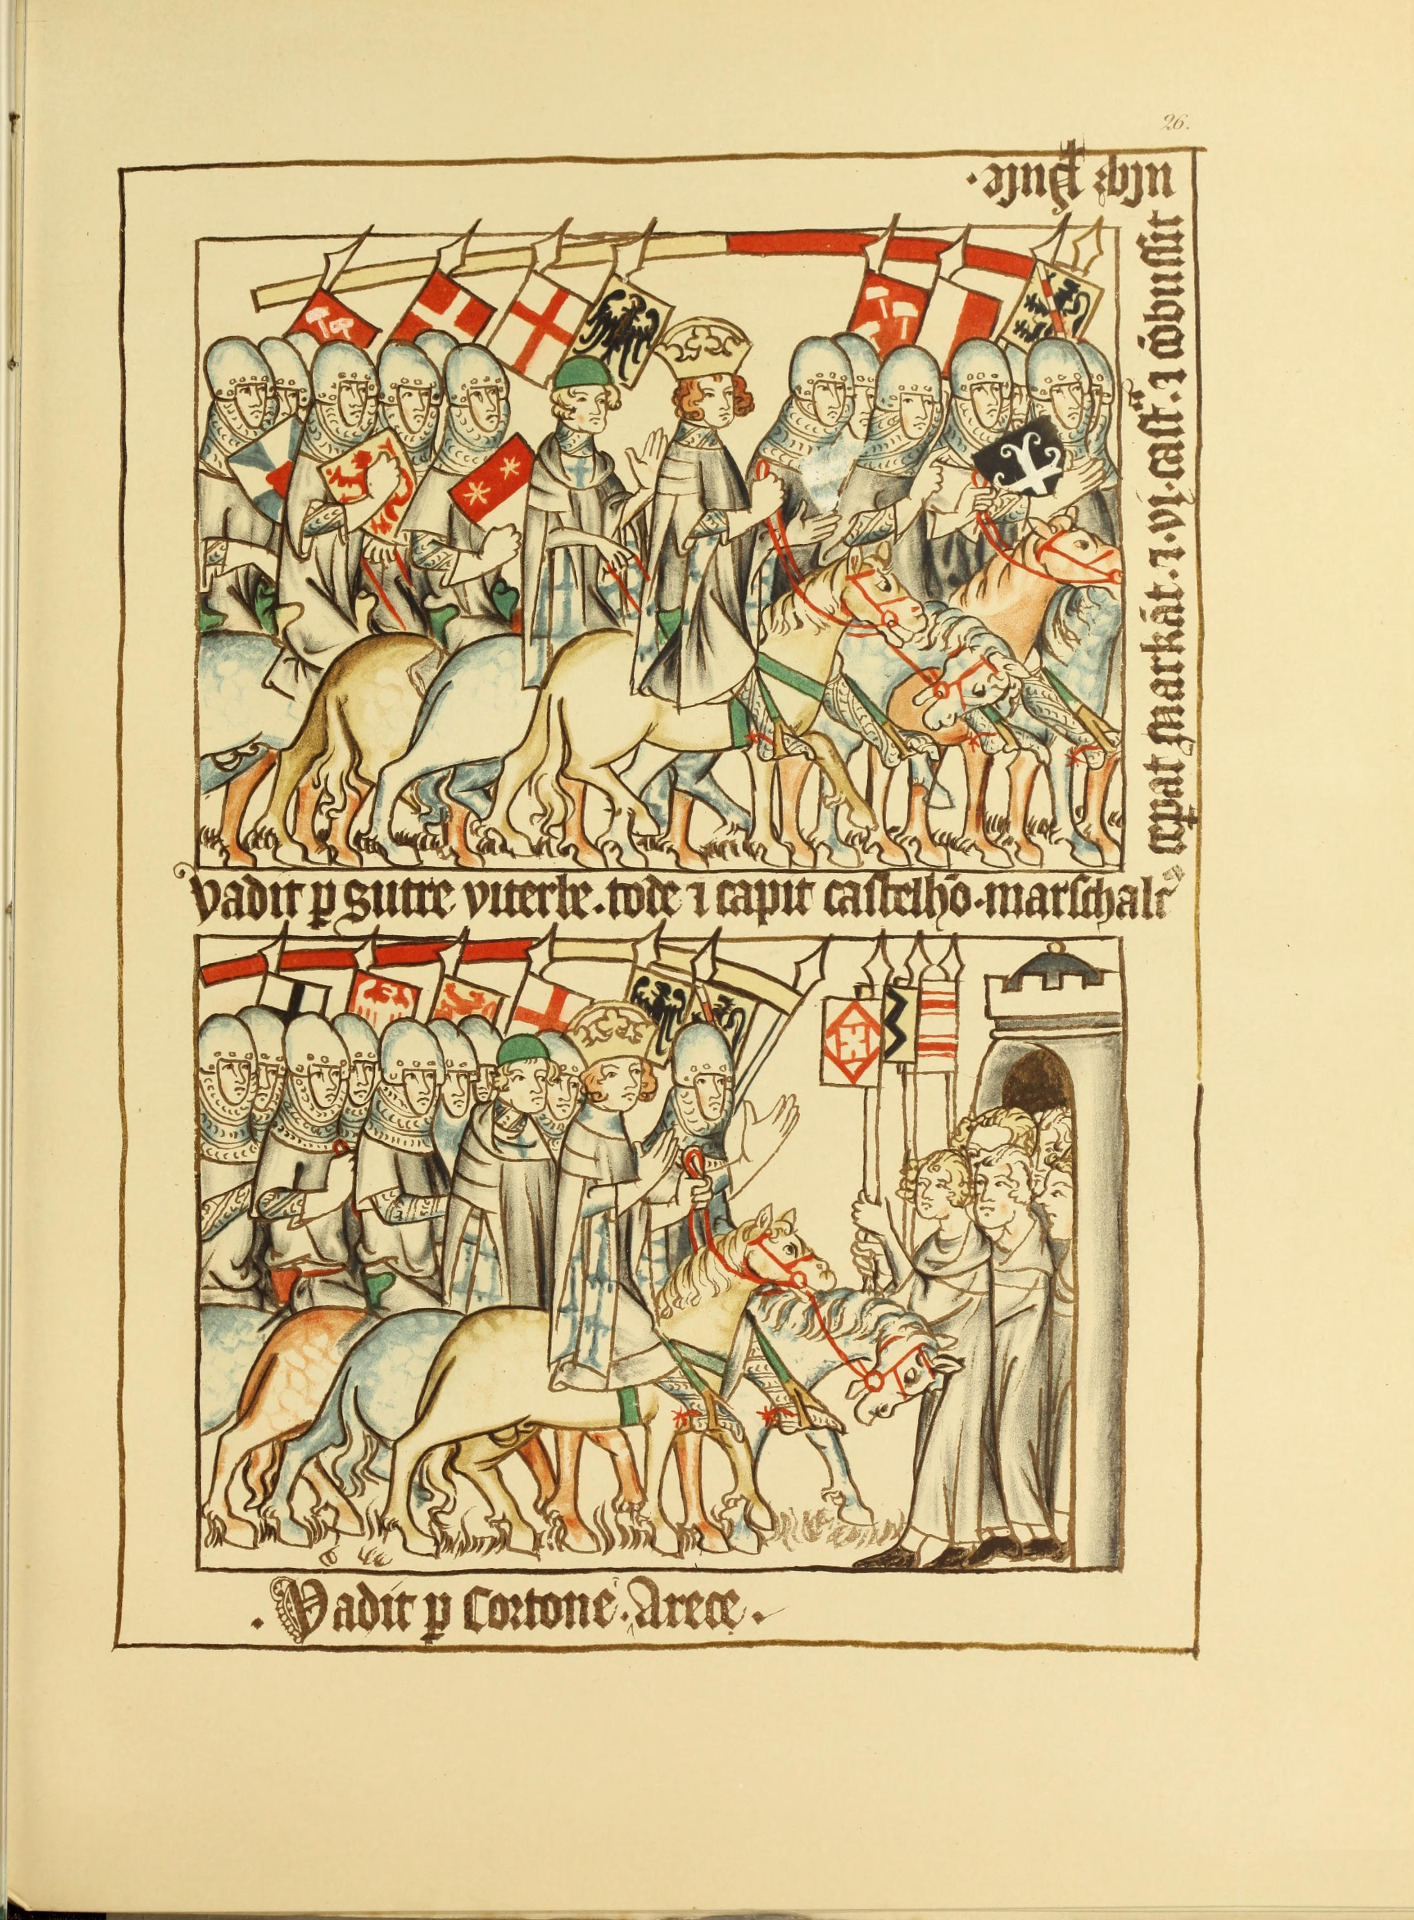 26.
vadit ꝑ sutre viterbe . tode ⁊ capit castelhō . marschalt
cepat markāt . ⁊ . vj . cast̄ . ⁊ ɔ̄bussit
. Vadit ꝑ Cortonē . Arece .